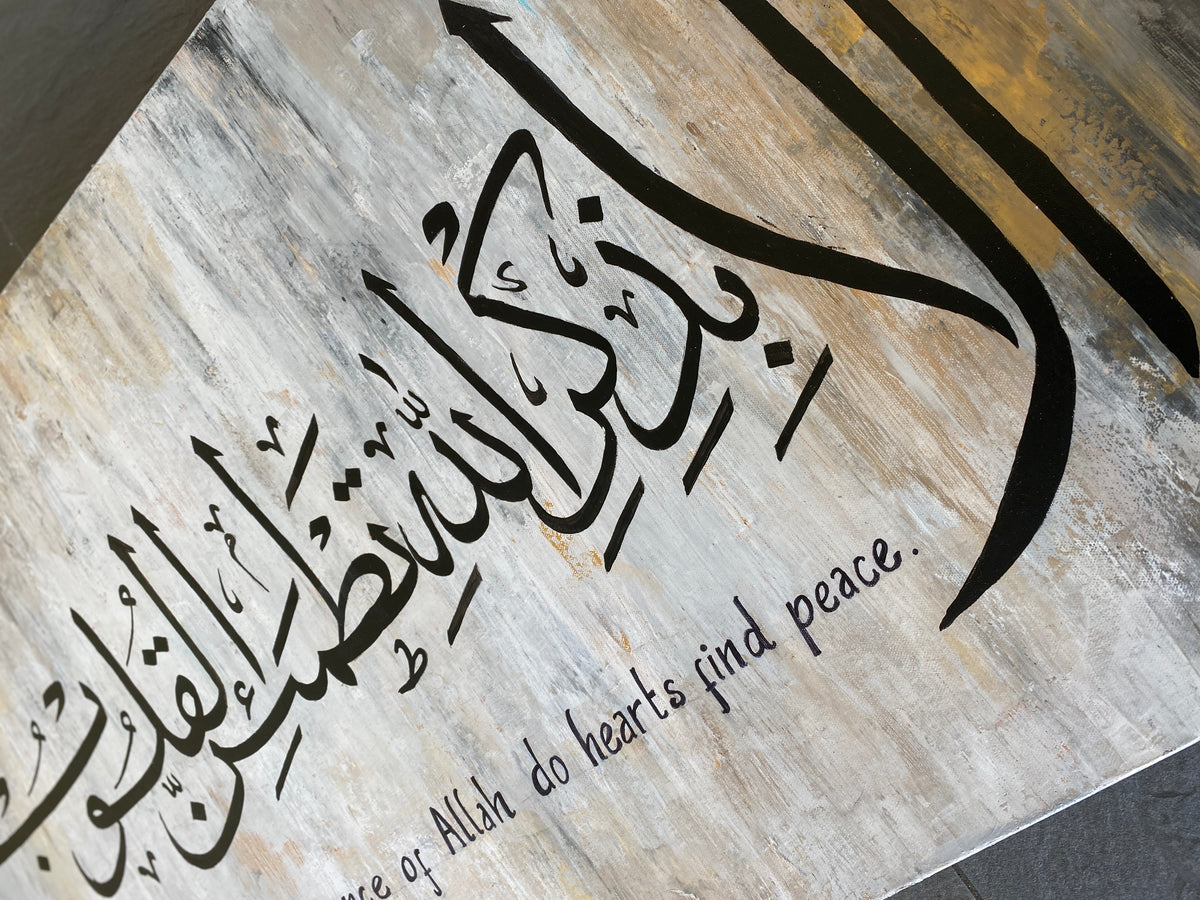 ألا بِذِكْرِ اللَّهِ تَطْمَئِنُّ الْقُلُوبُ
of Allah do hearts find peace.